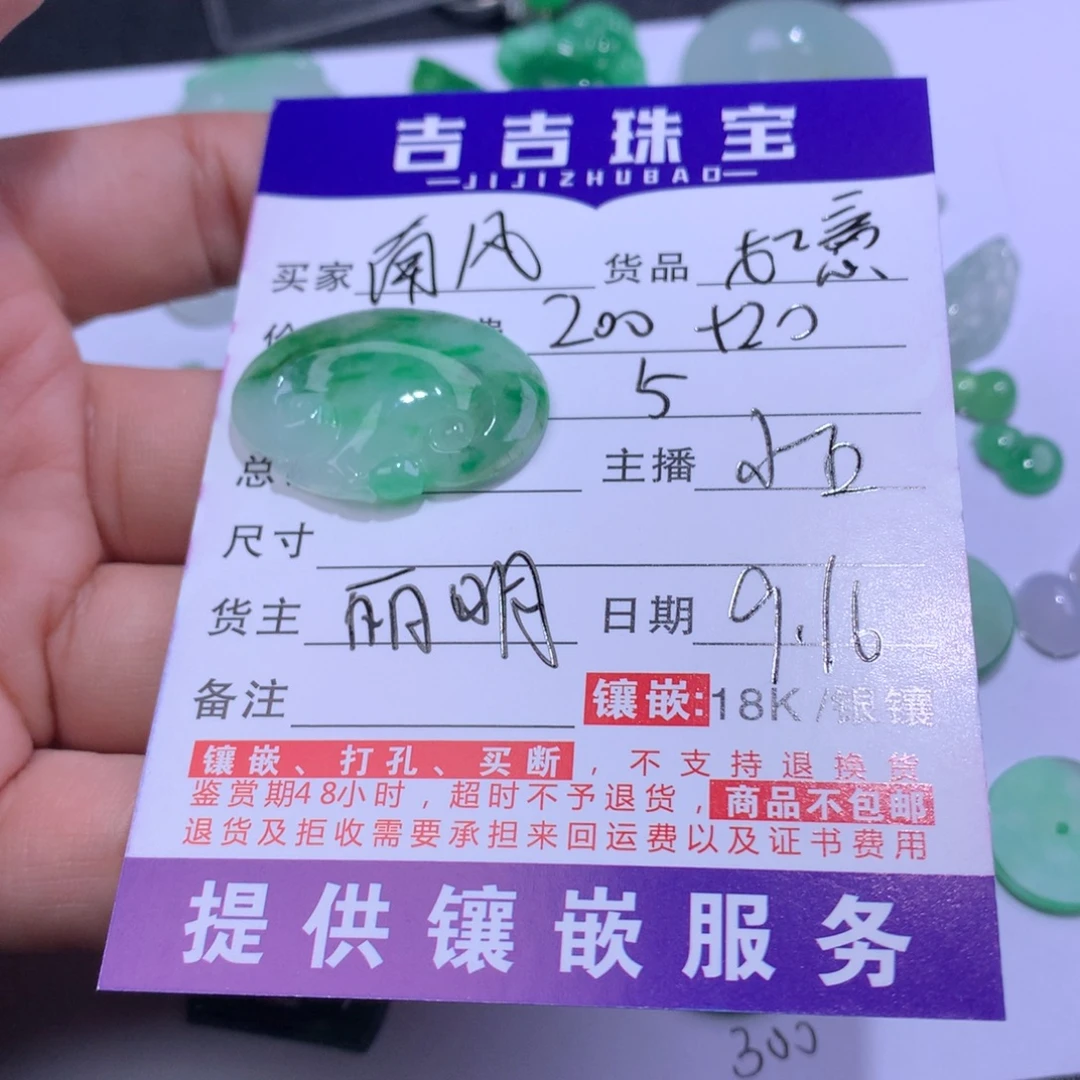 吉吉珠宝
JIJIZHUBAO
买家 南风 货品 如意
价 200 +20
5
总 主播
尺寸
货主 丽明 日期 9.16
备注 镶嵌:18K/银镶
镶嵌、打孔、买断，不支持退换货
鉴赏期48小时，超时不予退货，商品不包邮
退货及拒收需要承担来回运费以及证书费用
提供镶嵌服务
300